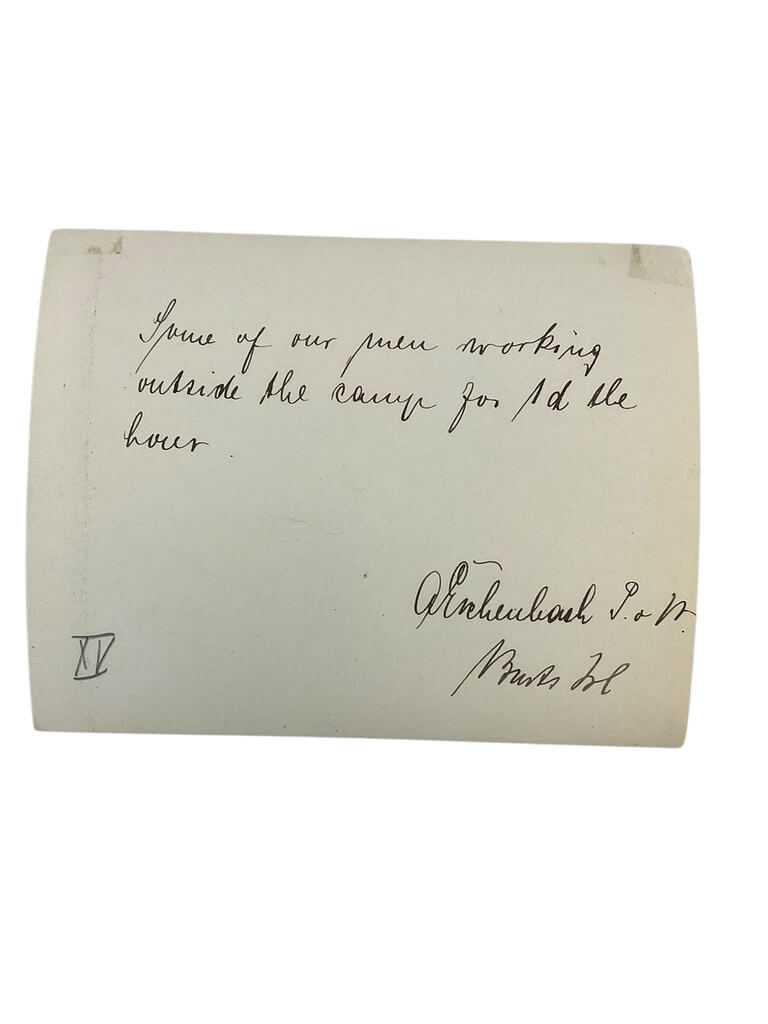 Some of our men working
outside the camp for 1d the
hour.
A Eschenbach P. o W.
Burts Isl
XV